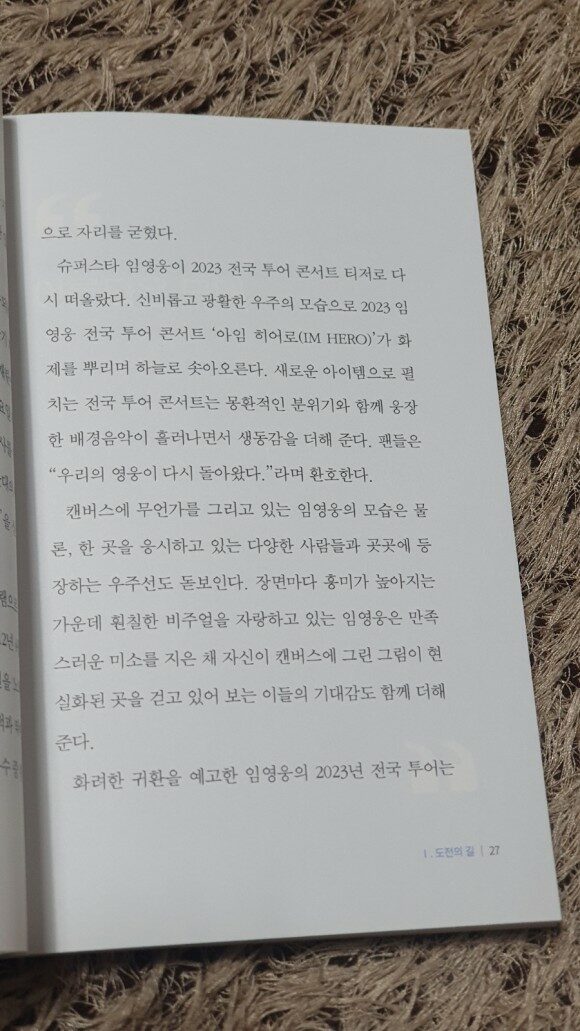 으로 자리를 굳혔다.
슈퍼스타 임영웅이 2023 전국 투어 콘서트 티저로 다
시 떠올랐다. 신비롭고 광활한 우주의 모습으로 2023 임
영웅 전국 투어 콘서트 ‘아임 히어로(IM HERO)’가 화
제를 뿌리며 하늘로 솟아오른다. 새로운 아이템으로 펼
치는 전국 투어 콘서트는 몽환적인 분위기와 함께 웅장
한 배경음악이 흘러나면서 생동감을 더해 준다. 팬들은
“우리의 영웅이 다시 돌아왔다.”라며 환호한다.
캔버스에 무언가를 그리고 있는 임영웅의 모습은 물
론, 한 곳을 응시하고 있는 다양한 사람들과 곳곳에 등
장하는 우주선도 돋보인다. 장면마다 흥미가 높아지는
가운데 훤칠한 비주얼을 자랑하고 있는 임영웅은 만족
스러운 미소를 지은 채 자신이 캔버스에 그린 그림이 현
실화된 곳을 걷고 있어 보는 이들의 기대감도 함께 더해
준다.
화려한 귀환을 예고한 임영웅의 2023년 전국 투어는
Ⅰ. 도전의 길 | 27